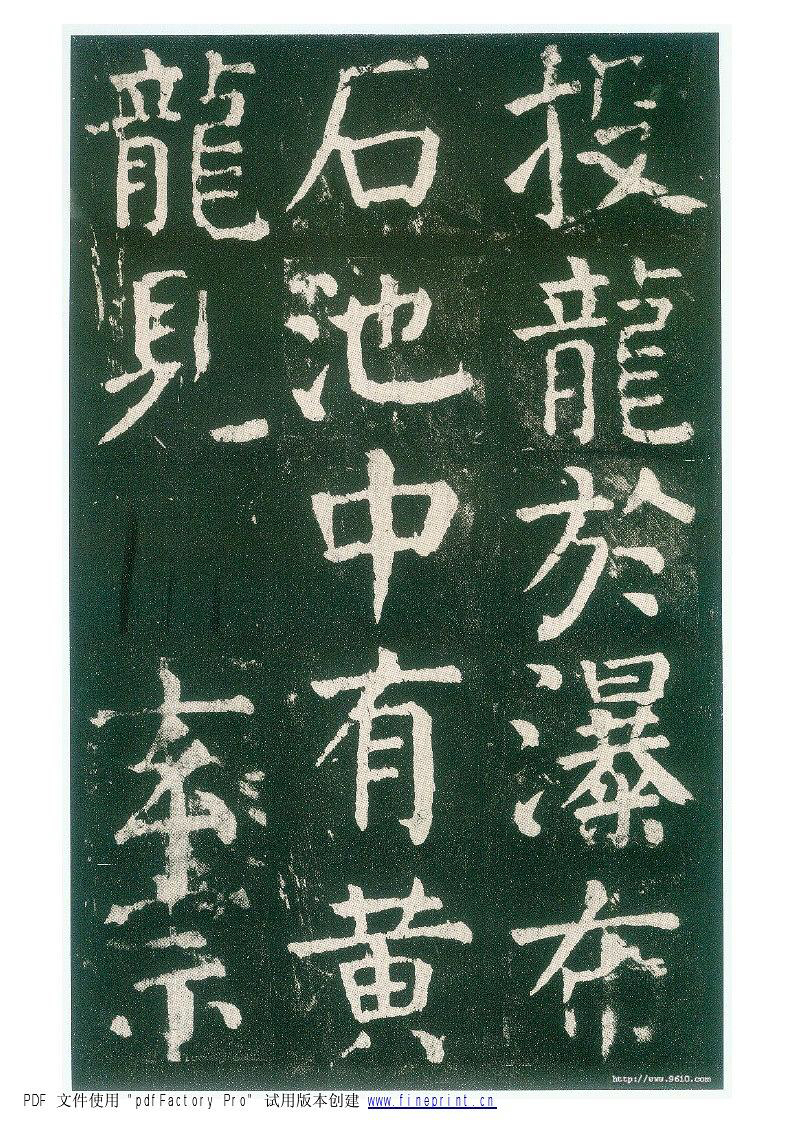 投龍於瀑布
石池中有黄
龍見 宗
http://www.9610.com
PDF 文件使用 "pdfFactory Pro" 试用版本创建 www.fineprint.cn